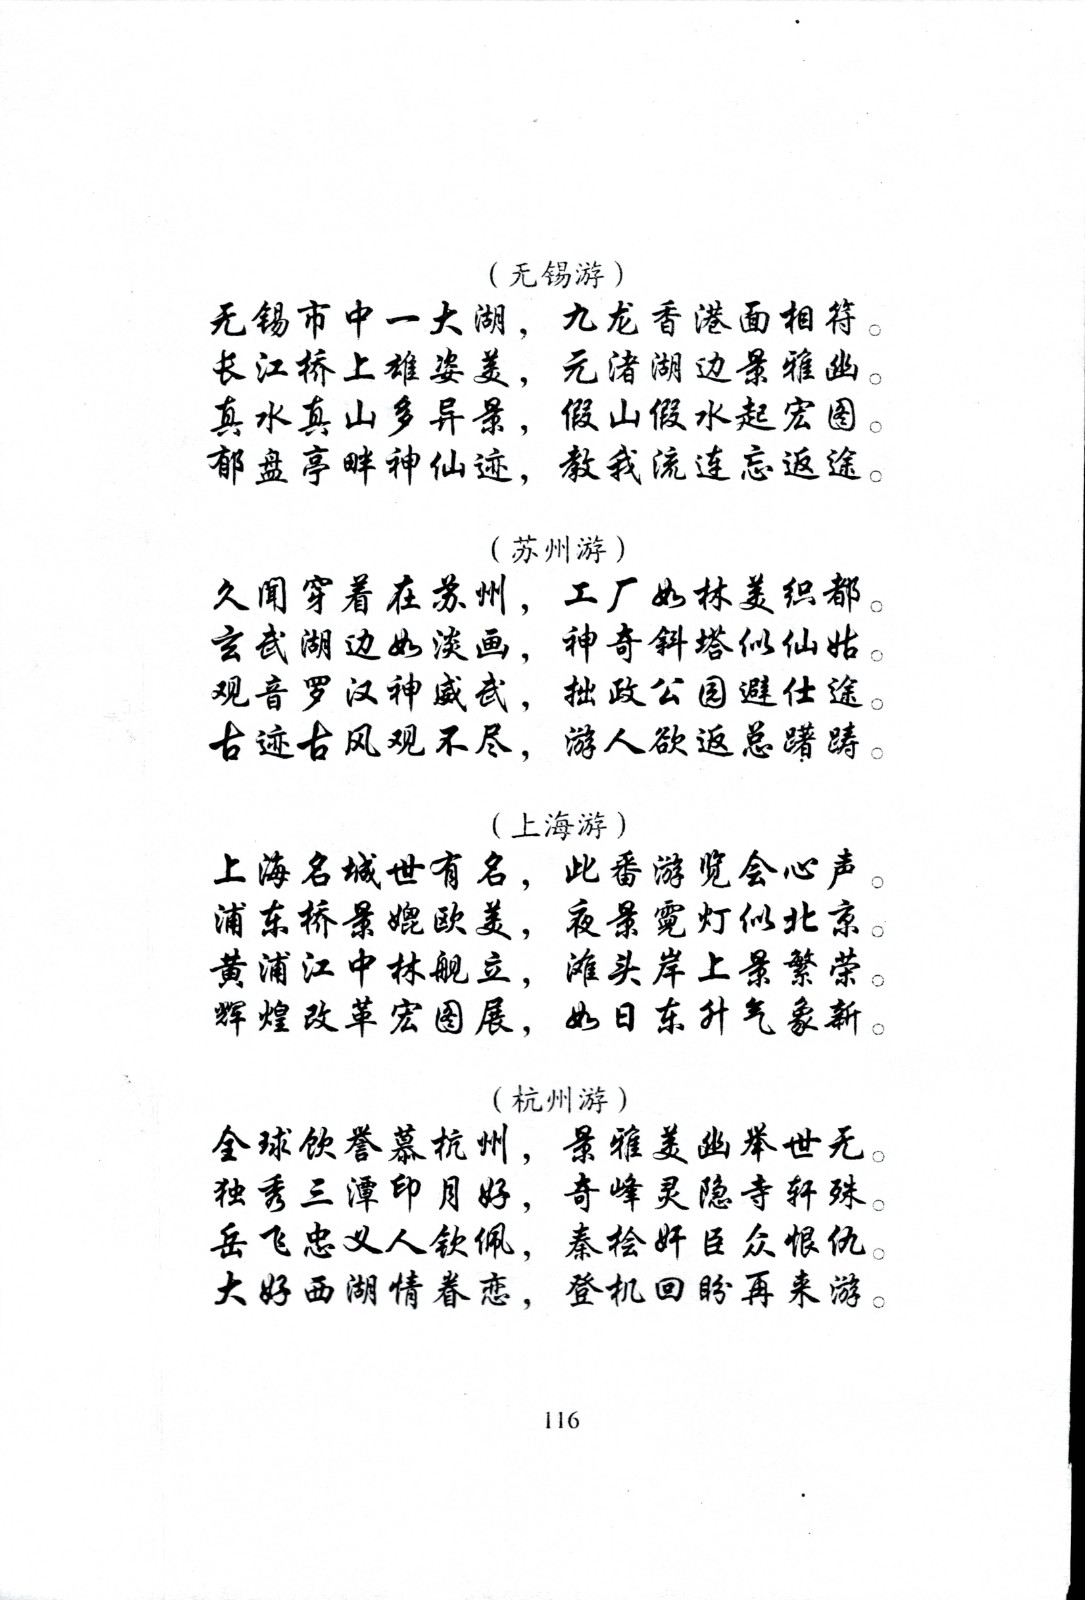 （无锡游）
无锡市中一大湖，九龙香港面相符。
长江桥上雄姿美，元渚湖边景雅幽。
真水真山多异景，假山假水起宏图。
郁盘亭畔神仙迹，教我流连忘返途。
（苏州游）
久闻穿着在苏州，工厂如林美织都。
玄武湖边如淡画，神奇斜塔似仙姑。
观音罗汉神威武，拙政公园避仕途。
古迹古风观不尽，游人欲返总躇踌。
（上海游）
上海名城世有名，此番游览会心声。
浦东桥景媲欧美，夜景霓灯似北京。
黄浦江中林舰立，滩头岸上景繁荣。
辉煌改革宏图展，如日东升气象新。
（杭州游）
全球饮誉慕杭州，景雅美幽举世无。
独秀三潭印月好，奇峰灵隐寺轩殊。
岳飞忠义人钦佩，秦桧奸臣众恨仇。
大好西湖情眷恋，登机回盼再来游。
116